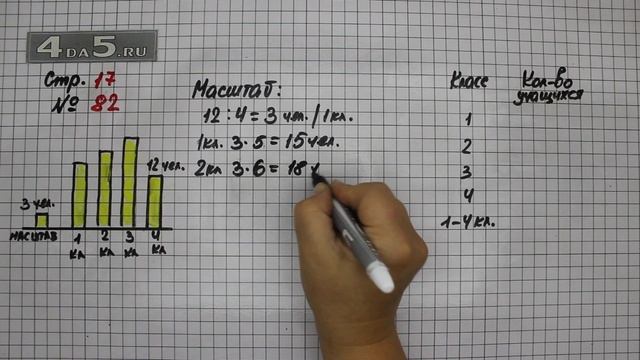 4DA5.RU
Стр. 17
№ 82
Масштаб:
12 : 4 = 3 чел. / 1 кл.
1кл. 3 · 5 = 15 чел.
2кл 3 · 6 = 18 ч
3 чел.
12 чел.
масштаб
1 кл
2 кл
3 кл
4 кл
Класс Кол-во учащихся
1
2
3
4
1-4 кл.